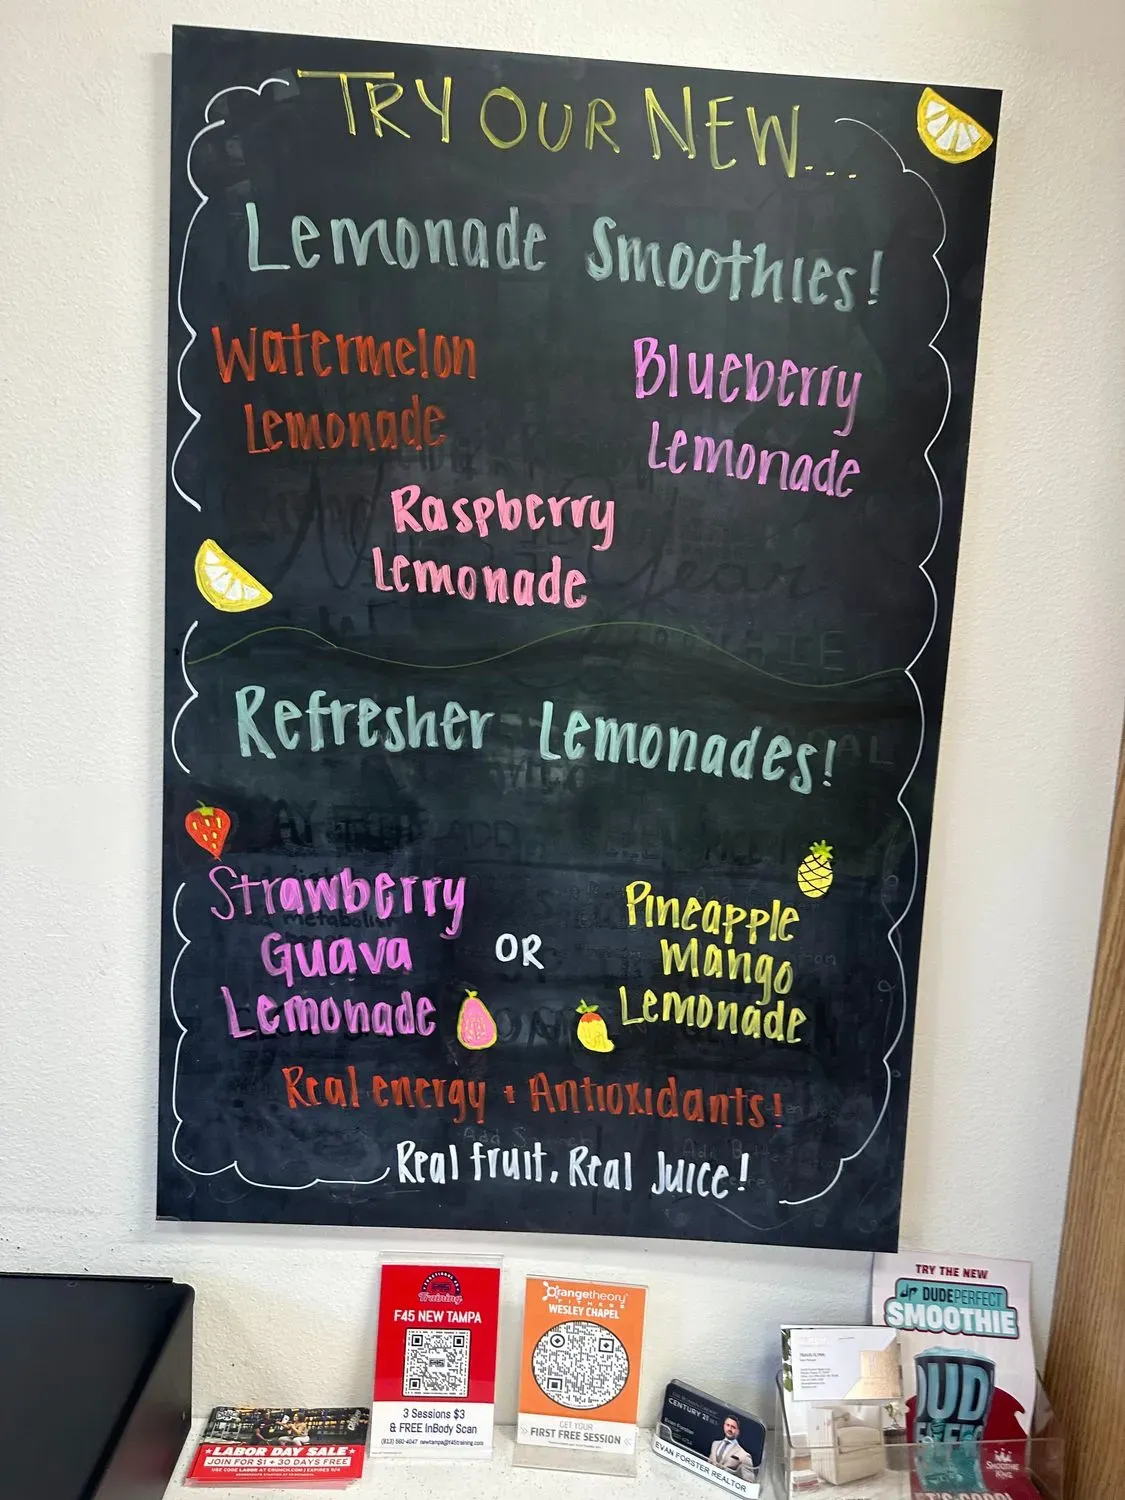 TRY OUR NEW...
Lemonade Smoothies!
Watermelon
Lemonade
Blueberry
Lemonade
Raspberry
Lemonade
Refresher Lemonades!
Strawberry
Guava
Lemonade
OR
Pineapple
Mango
Lemonade
Real energy + Antioxidants!
Real fruit, Real Juice!
F45
Training
F45 NEW TAMPA
3 Sessions $3
& FREE InBody Scan
(813) 560-4047 newtampa@f45training.com
Orangetheory
FITNESS
WESLEY CHAPEL
GET YOUR
FIRST FREE SESSION
LABOR DAY SALE
JOIN FOR $1 + 30 DAYS FREE
CENTURY 21
EVAN FORSTER REALTOR
TRY THE NEW
DUDEPERFECT
SMOOTHIE
SMOOTHIE
KING